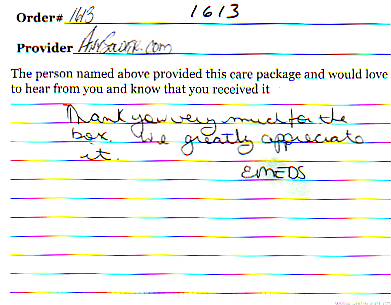 Order# 1613 1613
Provider AnySoldier.com
The person named above provided this care package and would love
to hear from you and know that you received it
Thank you very much for the
box. We greatly appreciate
it.
EMEDS